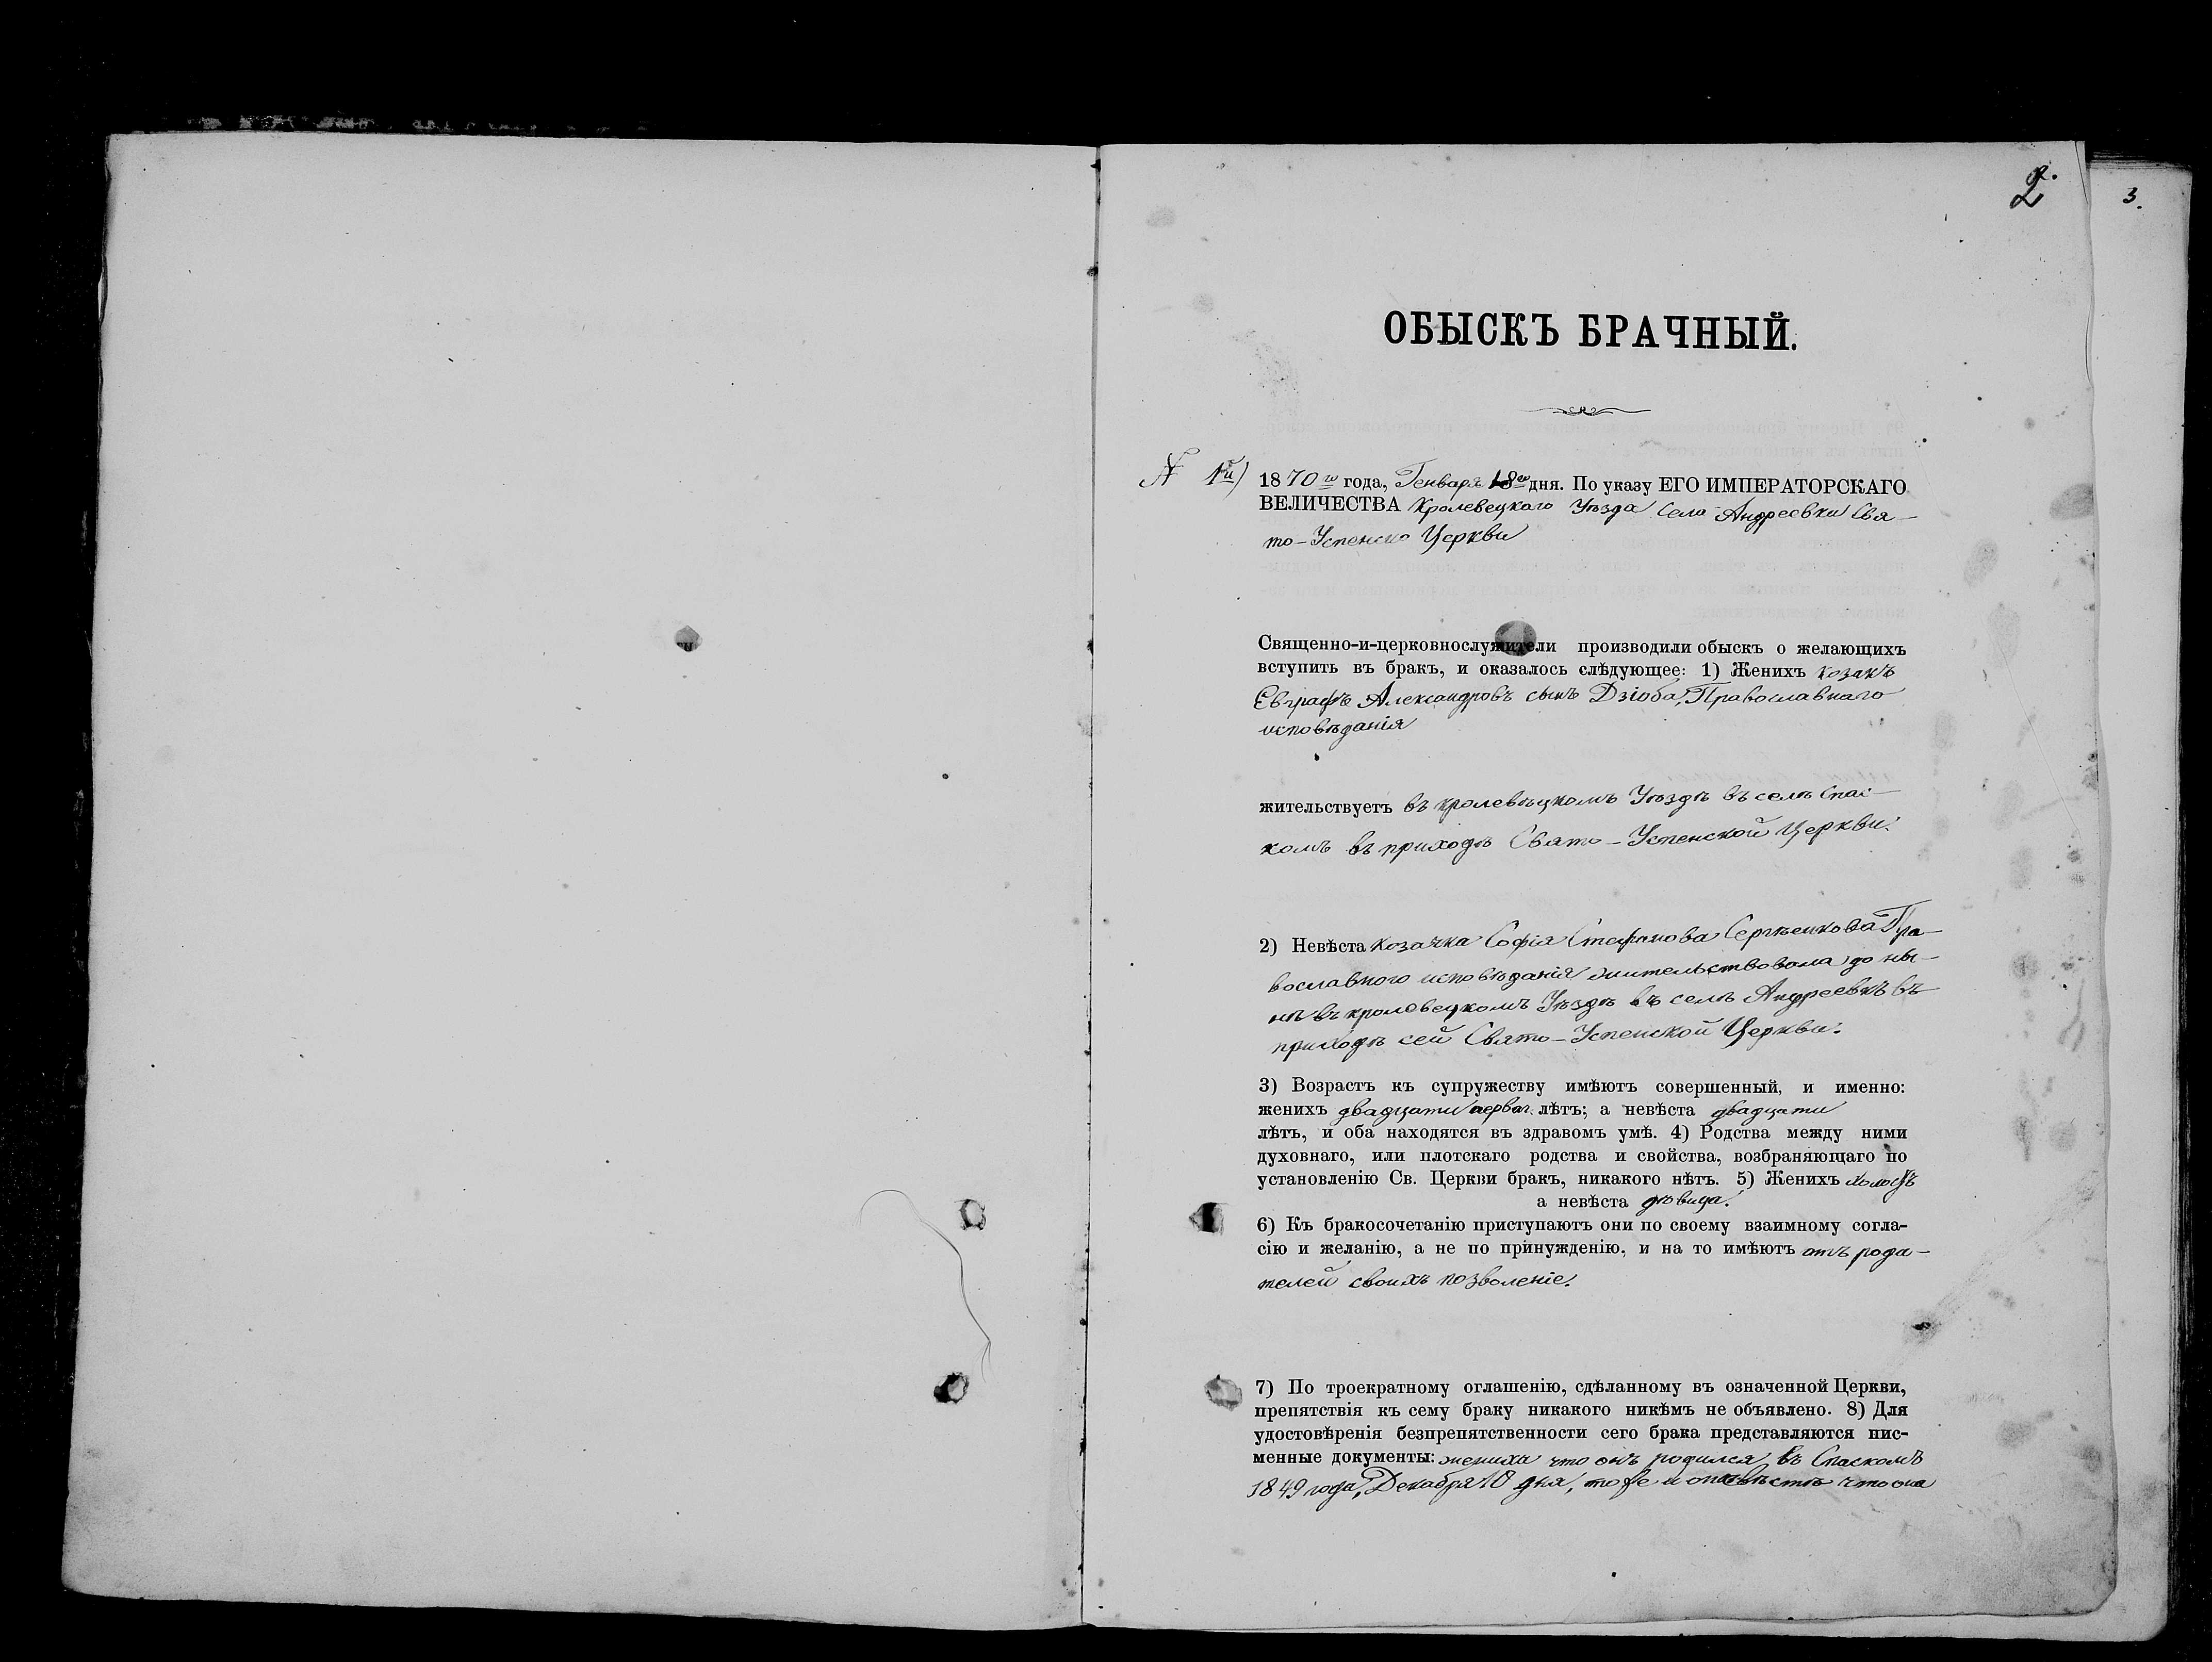 2.
3.
ОБЫСКЪ БРАЧНЫЙ.
№ 1й) 1870го года, Генваря 18го дня. По указу ЕГО ИМПЕРАТОРСКАГО
ВЕЛИЧЕСТВА Кролевецкаго Уѣзда Села Андреевки Свя-
то-Успенско Церкви
Священно-и-церковнослужители производили обыскъ о желающихъ
вступить въ бракъ, и оказалось слѣдующее: 1) Женихъ козакъ
Евграфъ Александровъ сынъ Дзюба, Православнаго
исповѣданія
жительствуетъ въ кролевѣцкомъ Уѣздѣ въ селѣ Спас-
комъ въ приходѣ Свято-Успенской Церкви.
2) Невѣста козачка Софія Стефанова Сергѣенкова Пра-
вославного исповѣданія жительствовала до ны-
нѣ въ кролевецкомъ Уѣздѣ въ селѣ Андреевкѣ въ
приходѣ сей Свято-Успенской Церкви.
3) Возрастъ къ супружеству имѣютъ совершенный, и именно:
женихъ двадцати перваг. лѣтъ; а невѣста двадцати
лѣтъ, и оба находятся въ здравомъ умѣ. 4) Родства между ними
духовнаго, или плотскаго родства и свойства, возбраняющаго по
установленію Св. Церкви бракъ, никакого нѣтъ. 5) Женихъ холостъ
а невѣста дѣвица.
6) Къ бракосочетанію приступаютъ они по своему взаимному согла-
сію и желанію, а не по принужденію, и на то имѣютъ отъ роди-
телей своихъ позволеніе.
7) По троекратному оглашенію, сдѣланному въ означенной Церкви,
препятствія къ сему браку никакого никѣмъ не объявлено. 8) Для
удостовѣренія безпрепятственности сего брака представляются пис-
менные документы: жениха что онъ родился въ Спаскомъ
1849 года, Декабря 10 дня, то же и о невѣстѣ что она